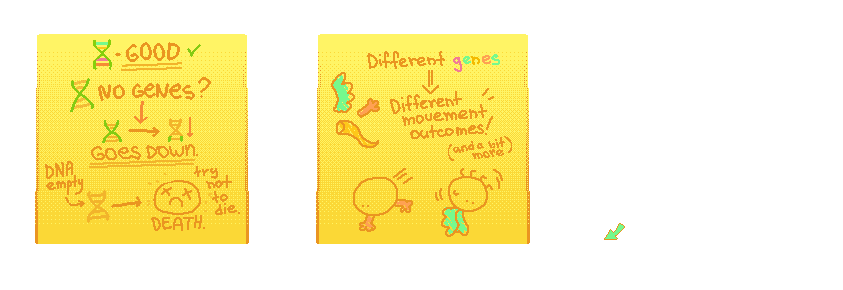 - GOOD ✓
NO GENES?
GOES DOWN.
DNA
empty
try
not
to
die.
DEATH.
Different genes
Different
movement
outcomes!
(and a bit
more)